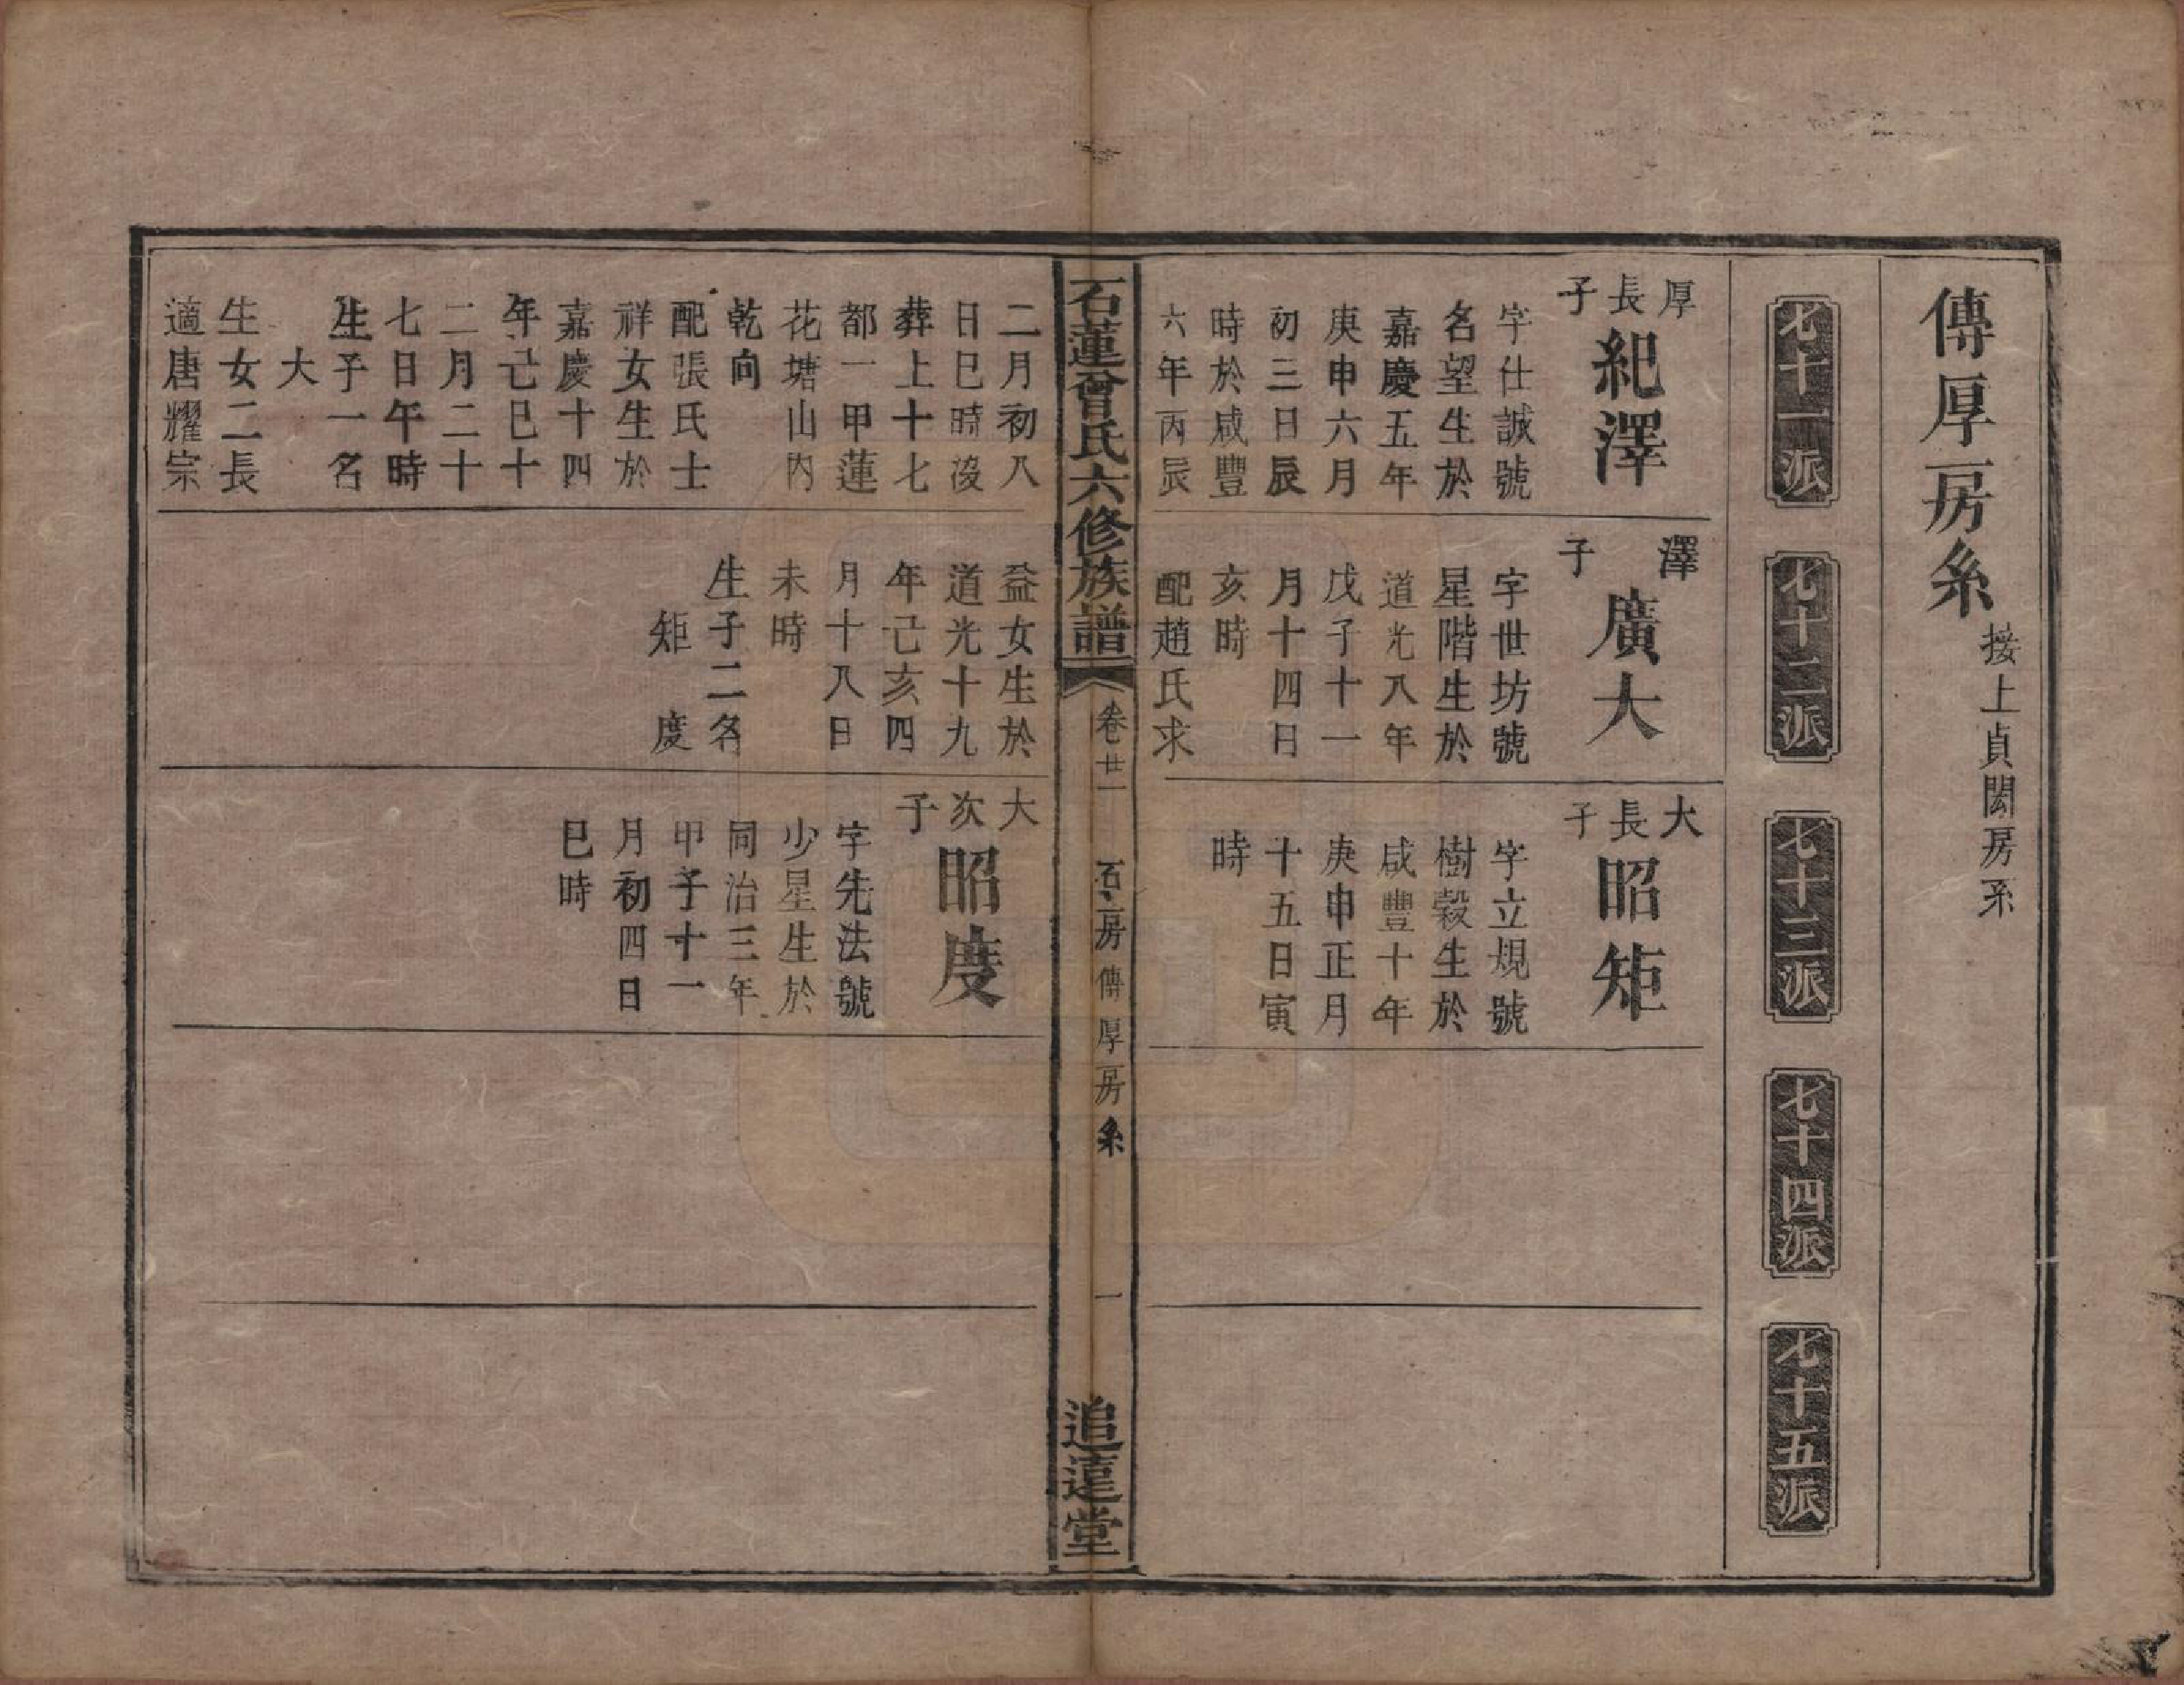 傳厚房系
接上貞閎房系
七十一派
七十二派
七十三派
七十四派
七十五派
厚
長
子
紀澤
字仕誠號
名望生於
嘉慶五年
庚申六月
初三日辰
時於咸豐
六年丙辰
澤
子
廣大
字世坊號
星階生於
道光八年
戊子十一
月十四日
亥時
配趙氏求
大
長
子
昭矩
字立規號
樹穀生於
咸豐十年
庚申正月
十五日寅
時
石蓮曾氏六修族譜
卷廿一
石上房傳厚房系
一
追遠堂
二月初八
日巳時沒
葬上十七
都一甲蓮
花塘山內
乾向
配張氏士
祥女生於
嘉慶十四
年己巳十
二月二十
七日午時
生子一名
大
生女二長
適唐耀宗
益女生於
道光十九
年己亥四
月十八日
未時
生子二名
矩 度
大
次
子
昭度
字先法號
少星生於
同治三年
甲子十一
月初四日
巳時